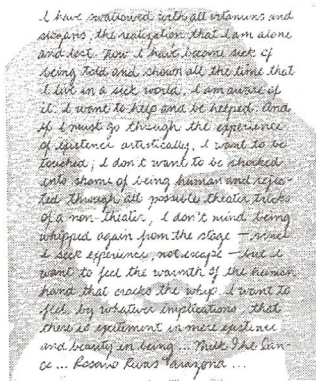 I have swallowed with all vitamins and
slogans, the realization that I am alone
and lost. Now I have become sick of
being told and shown all the time that
I live in a sick world, I am aware of
it. I want to help and be helped. And
if I must go through the experience
of existence artistically, I want to be
touched; I don't want to be shocked
into shame of being human and rejec-
ted through all possible theater tricks
of a non-theater, I don't mind being
whipped again from the stage — since
I seek experience, not escape — but I
want to feel the warmth of the human
hand that cracks the whip. I want to
feel, by whatever implications, that
there is excitement in mere existence
and beauty in being ... The
ce ... Rosario Rivas Tarazona ...